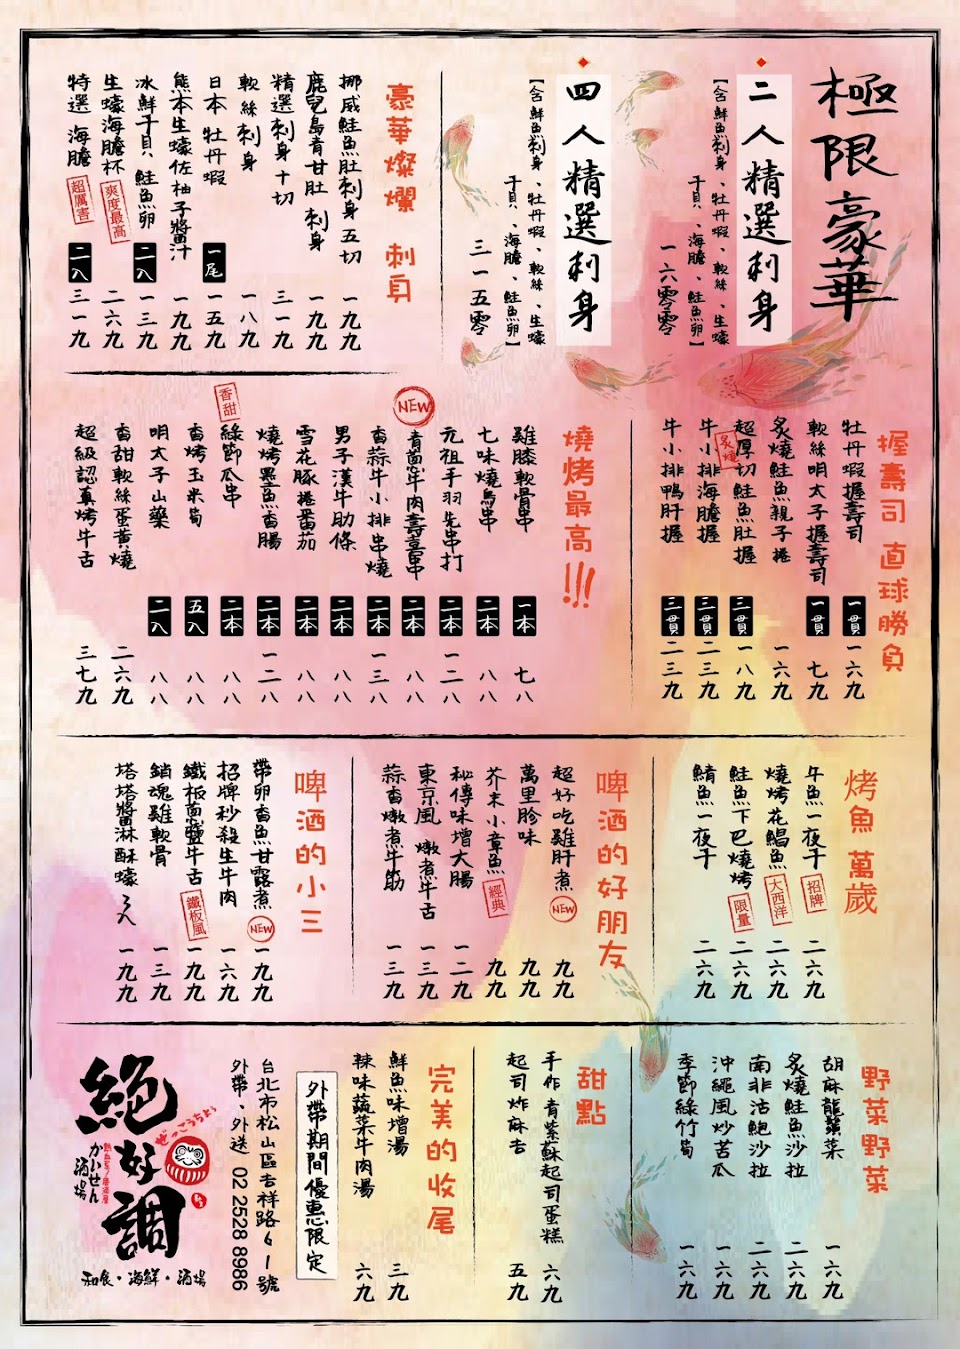 極限豪華
二人精選刺身
【含鮮魚刺身、牡丹蝦、軟絲、生蠔
干貝、海膽、鮭魚卵】
一六零零
四人精選刺身
【含鮮魚刺身、牡丹蝦、軟絲、生蠔
干貝、海膽、鮭魚卵】
三一五零
豪華燦爛 刺身
挪威鮭魚肚刺身五切 一九九
鹿兒島青甘肚刺身 一九九
精選刺身十切 三一九
軟絲刺身 一八九
日本牡丹蝦 一尾 一五九
熊本生蠔佐柚子醬汁 一九九
冰鮮干貝 鮭魚卵 二入 一三九
生蠔海膽杯 爽度最高 二六九
特選 海膽 超厲害 二入 三一九
握壽司 直球勝負
牡丹蝦握壽司 一貫 一六九
軟絲明太子握壽司 一貫 七九
炙燒鮭魚親子捲 一六九
超厚切鮭魚肚握 三貫 一八九
牛小排海膽握 炙燒 三貫 二三九
牛小排鴨肝握 三貫 二三九
燒烤最高!!!
雞膝軟骨串 一本 七八
七味燒鳥串 二本 八八
元祖手羽先串打 二本 一二八
NEW 青蔥牛肉壽喜串 二本 八八
香蒜牛小排串燒 二本 一三八
男子漢牛肋條 二本 八八
雪花豚捲番茄 二本 八八
燒烤墨魚香腸 二本 一二八
香甜 綠節瓜串 二本 八八
香烤玉米筍 五入 八八
明太子山藥 二入 八八
香甜軟絲蛋黃燒 二六九
超級認真烤牛舌 三七九
烤魚 萬歲
午魚一夜干 招牌 二六九
燒烤花鯧魚 大西洋 二六九
鮭魚下巴燒烤 限量 二六九
鯖魚一夜干 二六九
啤酒的好朋友
超好吃雞肝煮 NEW 九九
萬里胗味 九九
芥末小章魚 經典 九九
秘傳味增大腸 一二九
東京風 燉煮牛舌 一三九
蒜香燉煮牛筋 一三九
啤酒的小三
帶卵香魚甘露煮 NEW 一九九
招牌秒殺生牛肉 一六九
鐵板蔥鹽牛舌 鐵板風 一九九
銷魂雞軟骨 一三九
塔塔醬淋酥蠔 3入 一九九
野菜野菜
胡麻龍鬚菜 一六九
炙燒鮭魚沙拉 二六九
南非沽鮑沙拉 二六九
沖繩風炒苦瓜 一六九
季節綠竹筍 一六九
甜點
手作 青紫蘇起司蛋糕 六九
起司炸麻吉 五九
完美的收尾
鮮魚味增湯 三九
辣味蔬菜牛肉湯 六九
外帶期間優惠限定
台北市松山區吉祥路61號
外帶、外送 02 2528 8986
絕好調
ぜっこうちょう
かいせん
酒場
和食・海鮮・酒場